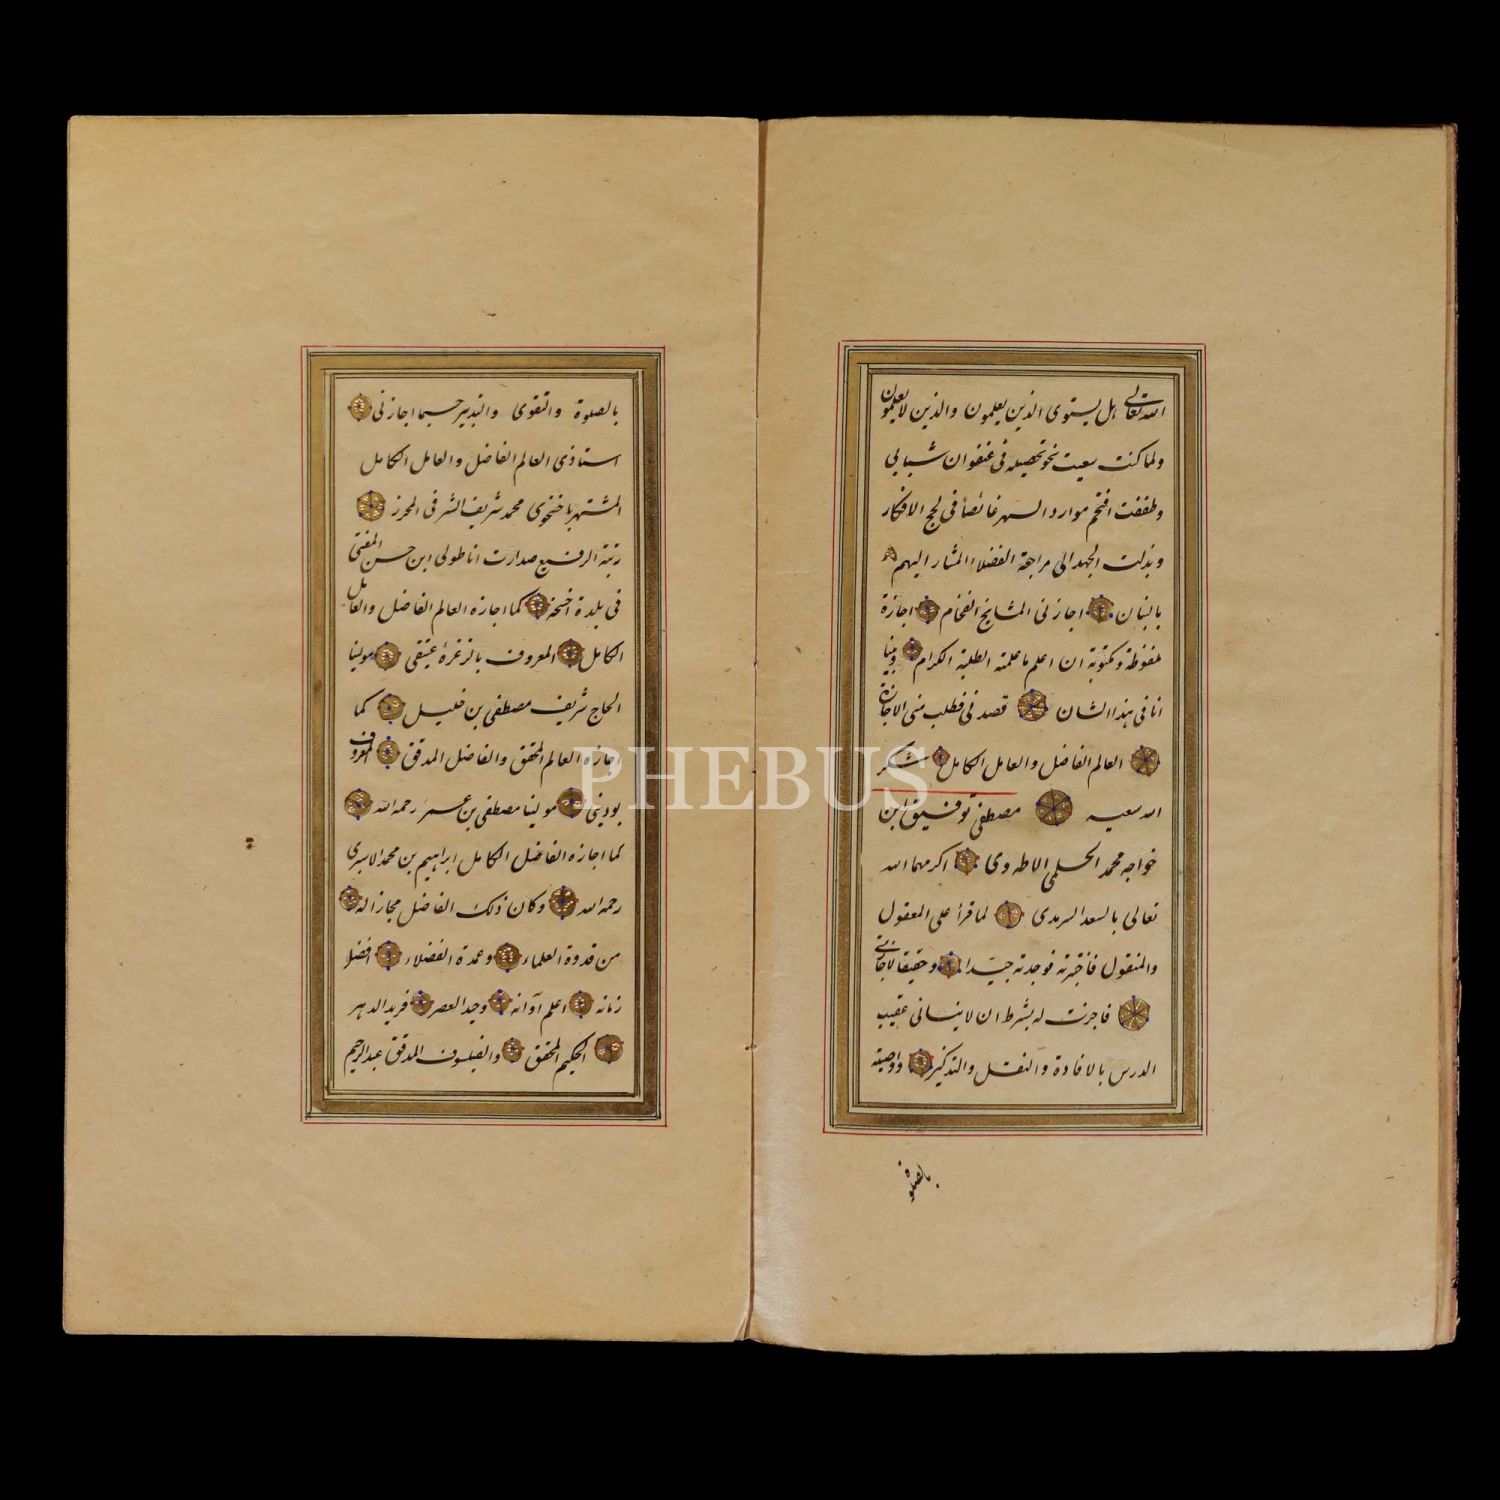 الله تعالى هل يستوى الذين يعلمون والذين لا يعلمون
ولما كنت سعيت نحو تحصيله فى عنفوان شبابى
وطفقت اقتحم موارد السهر غائصا فى لجج الافكار
وبذلت الجهد الى مراجعة الفضلاء المشار اليهم
بالبنان اجازنى المشايخ الفخام اجازة
ملفوظة ومكتوبة ان اعلم ما علمته الطلبة الكرام وبينا
انا فى هذا الشان قصدنى فطلب منى الاجازة
العالم الفاضل والعامل الكامل شكر
الله سعيه مصطفى توفيق ابن
خواجه محمد الحلمى الاطه وى اكرمهما الله
تعالى بالسعد السرمدى لما قرأ على المعقول
والمنقول فاختبرته فوجدته جيدا وحقيقا لاجازتى
فاجزت له بشرط ان لا ينسانى عقيب
الدرس بالافادة والنقل والتذكير واوصيته
بالصلوة
بالصلوة والتقوى والتدبير حسبما اجازنى
استاذى العالم الفاضل والعامل الكامل
المشتهر باخسخوى محمد شريف الشرفى المحرز
رتبة الرفيع صدارت اناطولى ابن حسن المفتى
فى بلدة اخسخه كما اجازه العالم الفاضل والعامل
الكامل المعروف عتيقى مولينا
الحاج شريف مصطفى بن خليل كما
اجازه العالم المحقق والفاضل المدقق المعروف
بودينى مولينا مصطفى بن عمر رحمه الله
كما اجازه الفاضل الكامل ابراهيم بن محمد الاسيرى
رحمه الله وكان ذلك الفاضل مجازا له
من قدوة العلماء وعمدة الفضلاء افضل
زمانه اعلم آوانه وحيد العصر فريد الدهر
الحكيم المحقق والفيلسوف المدقق عبد الرحيم
PHEBUS